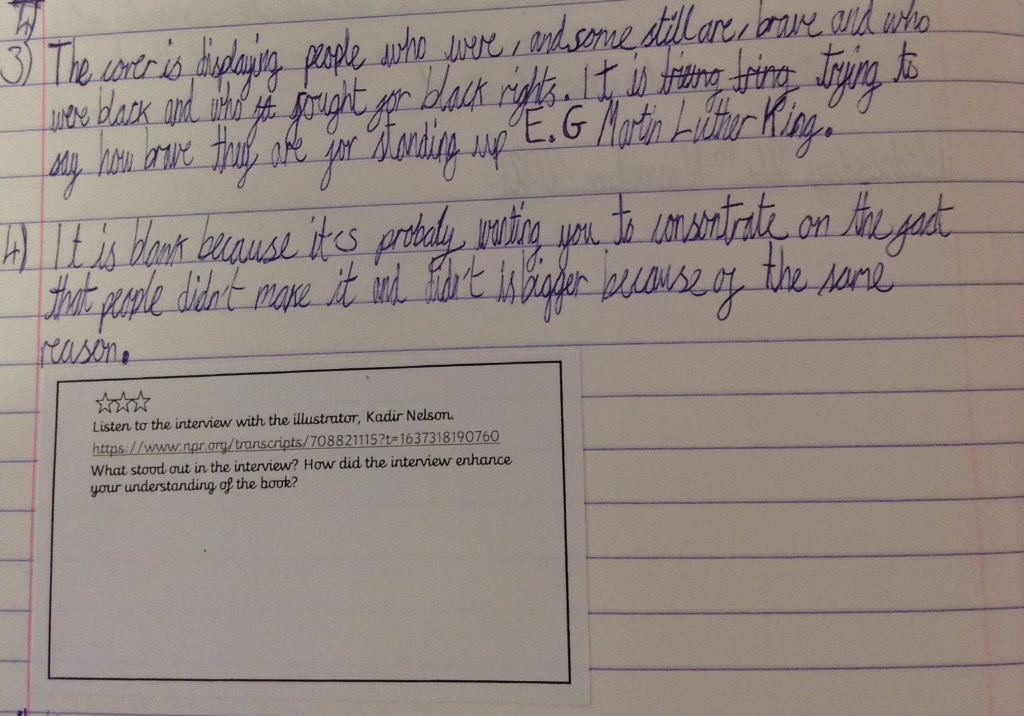 3) The cover is displaying people who were, and some still are, brave and who
were black and who fought for black rights. It is trying to
say how brave they are for standing up E.G Martin Luther King.
4) It is blank because it<s probaly wanting you to consontrate on the fact
that people didn't make it and didn't is bigger because of the same
reason.
☆☆☆
Listen to the interview with the illustrator, Kadir Nelson.
https://www.npr.org/transcripts/708821115?t=1637318190760
What stood out in the interview? How did the interview enhance
your understanding of the book?